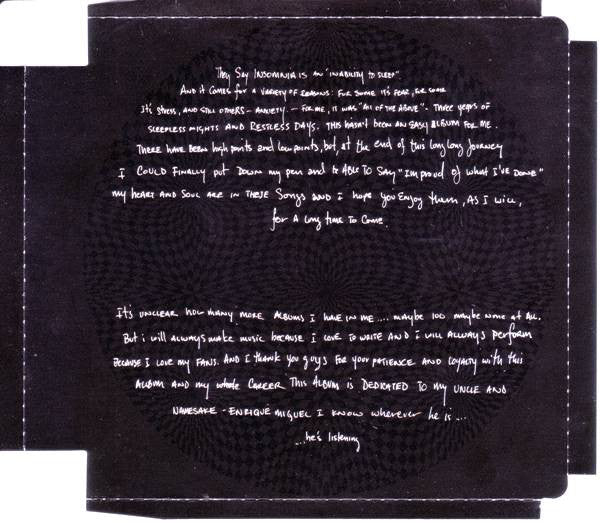 They Say INSOMNIA IS AN "INABILITY TO SLEEP".
AND it COMES for A VARIETY OF REASONS: FOR SOME It'S FEAR, FOR SOME
It's STRESS, AND STILL OTHERS - ANXIETY. - FOR ME, IT WAS "All of THE ABOVE". Three years of
SLEEPLESS NIGHTS AND RESTLESS DAYS. THIS HASN'T BEEN AN EASY ALBUM FOR ME.
THERE HAVE BEEN high points and low points, but, at the end of this long long journey
I COULD FINALLY put DOWN my pen and be ABLE TO SAY "I'm proud of what I'VE DONE"
my HEART AND SOUL ARE IN THESE Songs AND I hope you Enjoy them, AS I WILL,
for A long time To Come.
It's UNCLEAR how many more ALBUMS I HAVE IN ME .... maybe 100 maybe NONE at All.
But i will Always make music because I LOVE TO WRITE AND i will Always perform
BECAUSE I LOVE my FANS. AND I thank you guys For your PATIENCE AND LOYALTY with this
ALBUM AND my whole CAREER THIS ALBUM IS DEDICATED TO my UNCLE AND
NAMESAKE - ENRIQUE MIGUEL I KNOW wherever he is ...
...he's listening